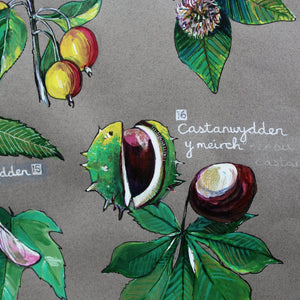 16
Castanwydden
y meirch
dden 15